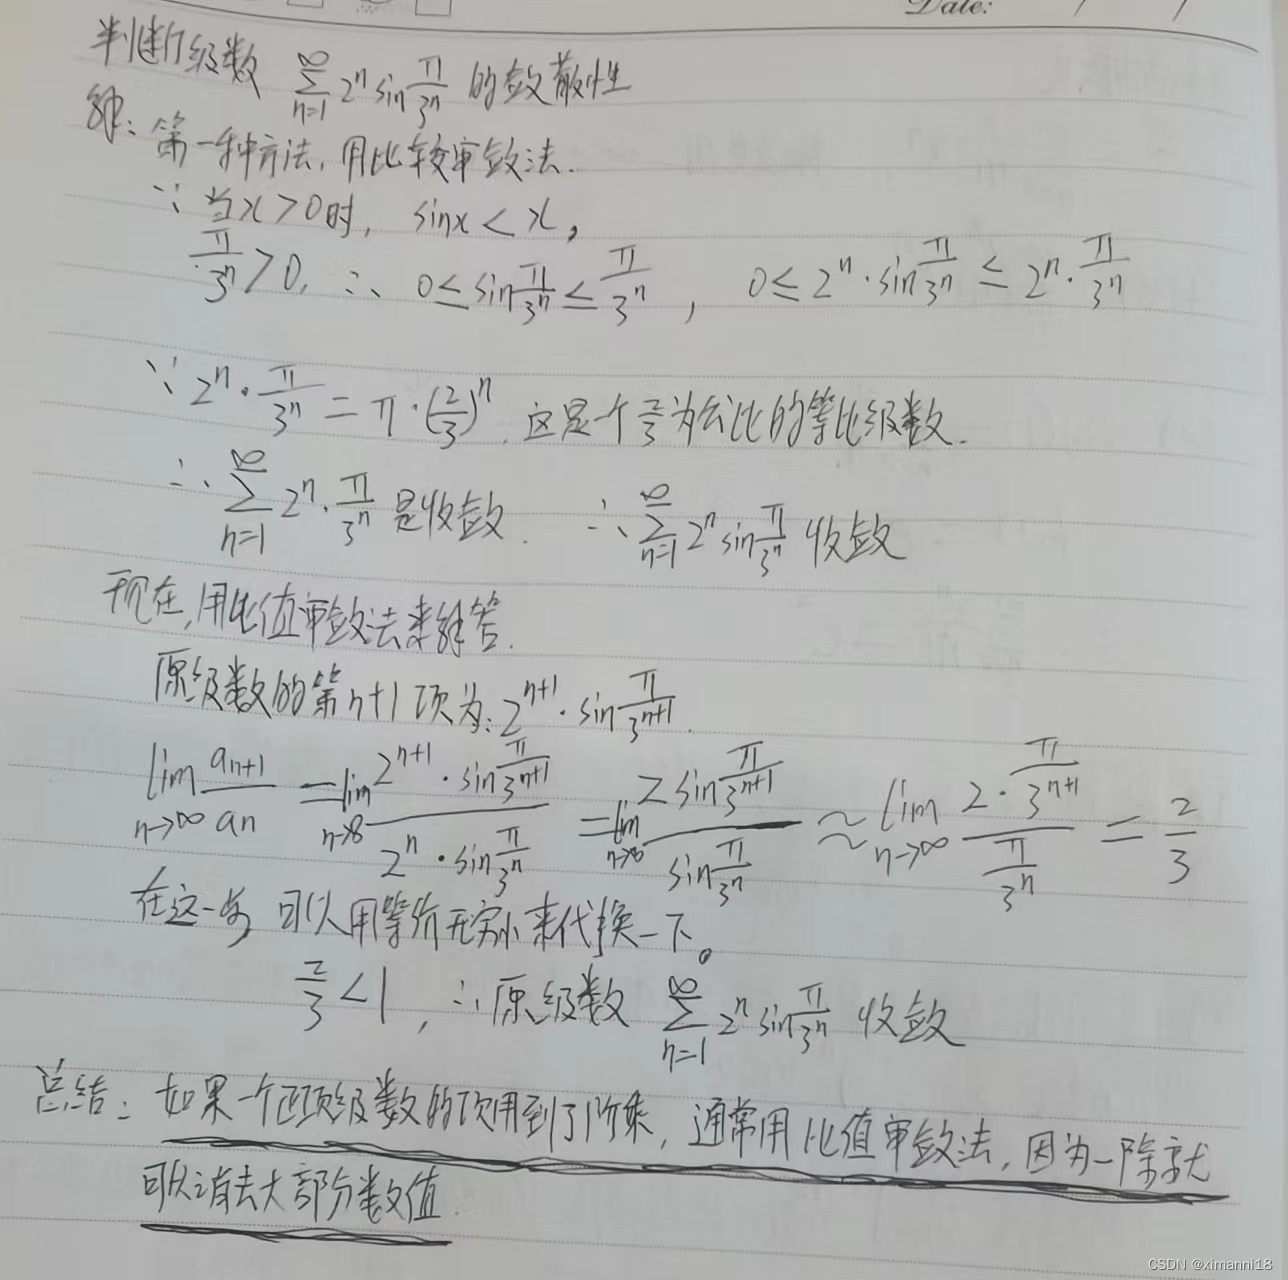 Date: / /
判断级数 ∑_{n=1}^{∞} 2^n sin π/3^n 的敛散性
解: 第一种方法, 用比较审敛法.
∵ 当x>0时, sinx < x,
π/3^n > 0, ∴ 0 ≤ sin π/3^n ≤ π/3^n , 0 ≤ 2^n · sin π/3^n ≤ 2^n · π/3^n
∵ 2^n · π/3^n = π · (2/3)^n . 这是个 2/3 为公比的等比级数.
∴ ∑_{n=1}^{∞} 2^n · π/3^n 是收敛. ∴ ∑_{n=1}^{∞} 2^n sin π/3^n 收敛
现在, 用比值审敛法来解答.
原级数的第n+1项为: 2^{n+1} · sin π/3^{n+1}.
lim_{n→∞} a_{n+1}/a_n = lim_{n→∞} (2^{n+1} · sin π/3^{n+1})/(2^n · sin π/3^n) = lim_{n→∞} (2 sin π/3^{n+1})/(sin π/3^n) ≈ lim_{n→∞} (2 · π/3^{n+1})/(π/3^n) = 2/3
在这一步 可以用等价无穷小来代换一下。
2/3 < 1, ∴ 原级数 ∑_{n=1}^{∞} 2^n sin π/3^n 收敛
总结: 如果一个正项级数的项用到了阶乘, 通常用比值审敛法, 因为一除就
可以消去大部分数值.
CSDN @ximanni18